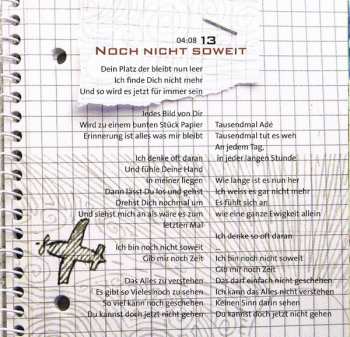 04:08 13
NOCH NICHT SOWEIT
Dein Platz der bleibt nun leer
Ich finde Dich nicht mehr
Und so wird es jetzt für immer sein
Jedes Bild von Dir
Wird zu einem bunten Stück Papier
Erinnerung ist alles was mir bleibt
Ich denke oft daran
Und fühle Deine Hand
in meiner liegen
Dann lässt Du los und gehst
Drehst Dich nochmal um
Und siehst mich an als wäre es zum
letzten Mal
Ich bin noch nicht soweit
Gib mir noch Zeit
Das Alles zu verstehen
Es gibt so Vieles noch zu sehen
So viel kann noch geschehen
Du kannst doch jetzt nicht gehen
Tausendmal Adé
Tausendmal tut es weh
An jedem Tag,
in jeder langen Stunde
Wie lange ist es nun her
Ich weiss es gar nicht mehr
Es fühlt sich an
wie eine ganze Ewigkeit allein
Ich denke so oft daran
...
Ich bin noch nicht soweit
Gib mir noch Zeit
Das darf einfach nicht geschehen
Ich kann das Alles nicht verstehen
Keinen Sinn darin sehen
Du kannst doch jetzt nicht gehen